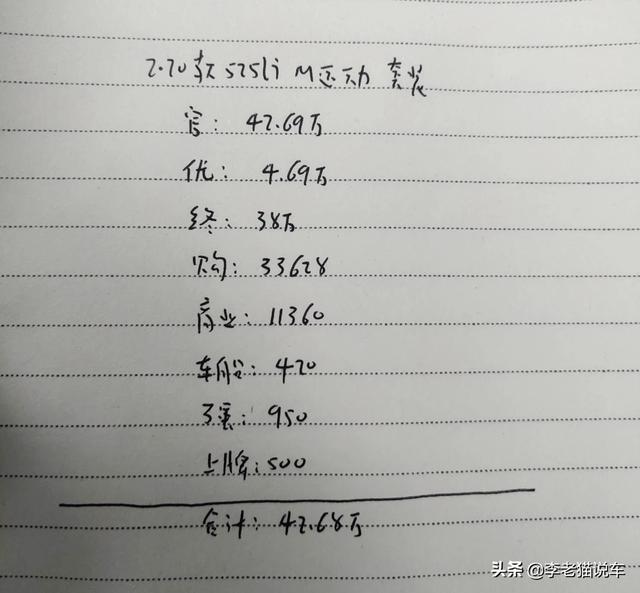 2.20款 525li M运动 套装
官: 42.69万
优: 4.69万
终: 38万
购: 33628
商业: 11360
车船: 420
交强: 950
上牌: 500
合计: 42.68万
头条 @李老猫说车